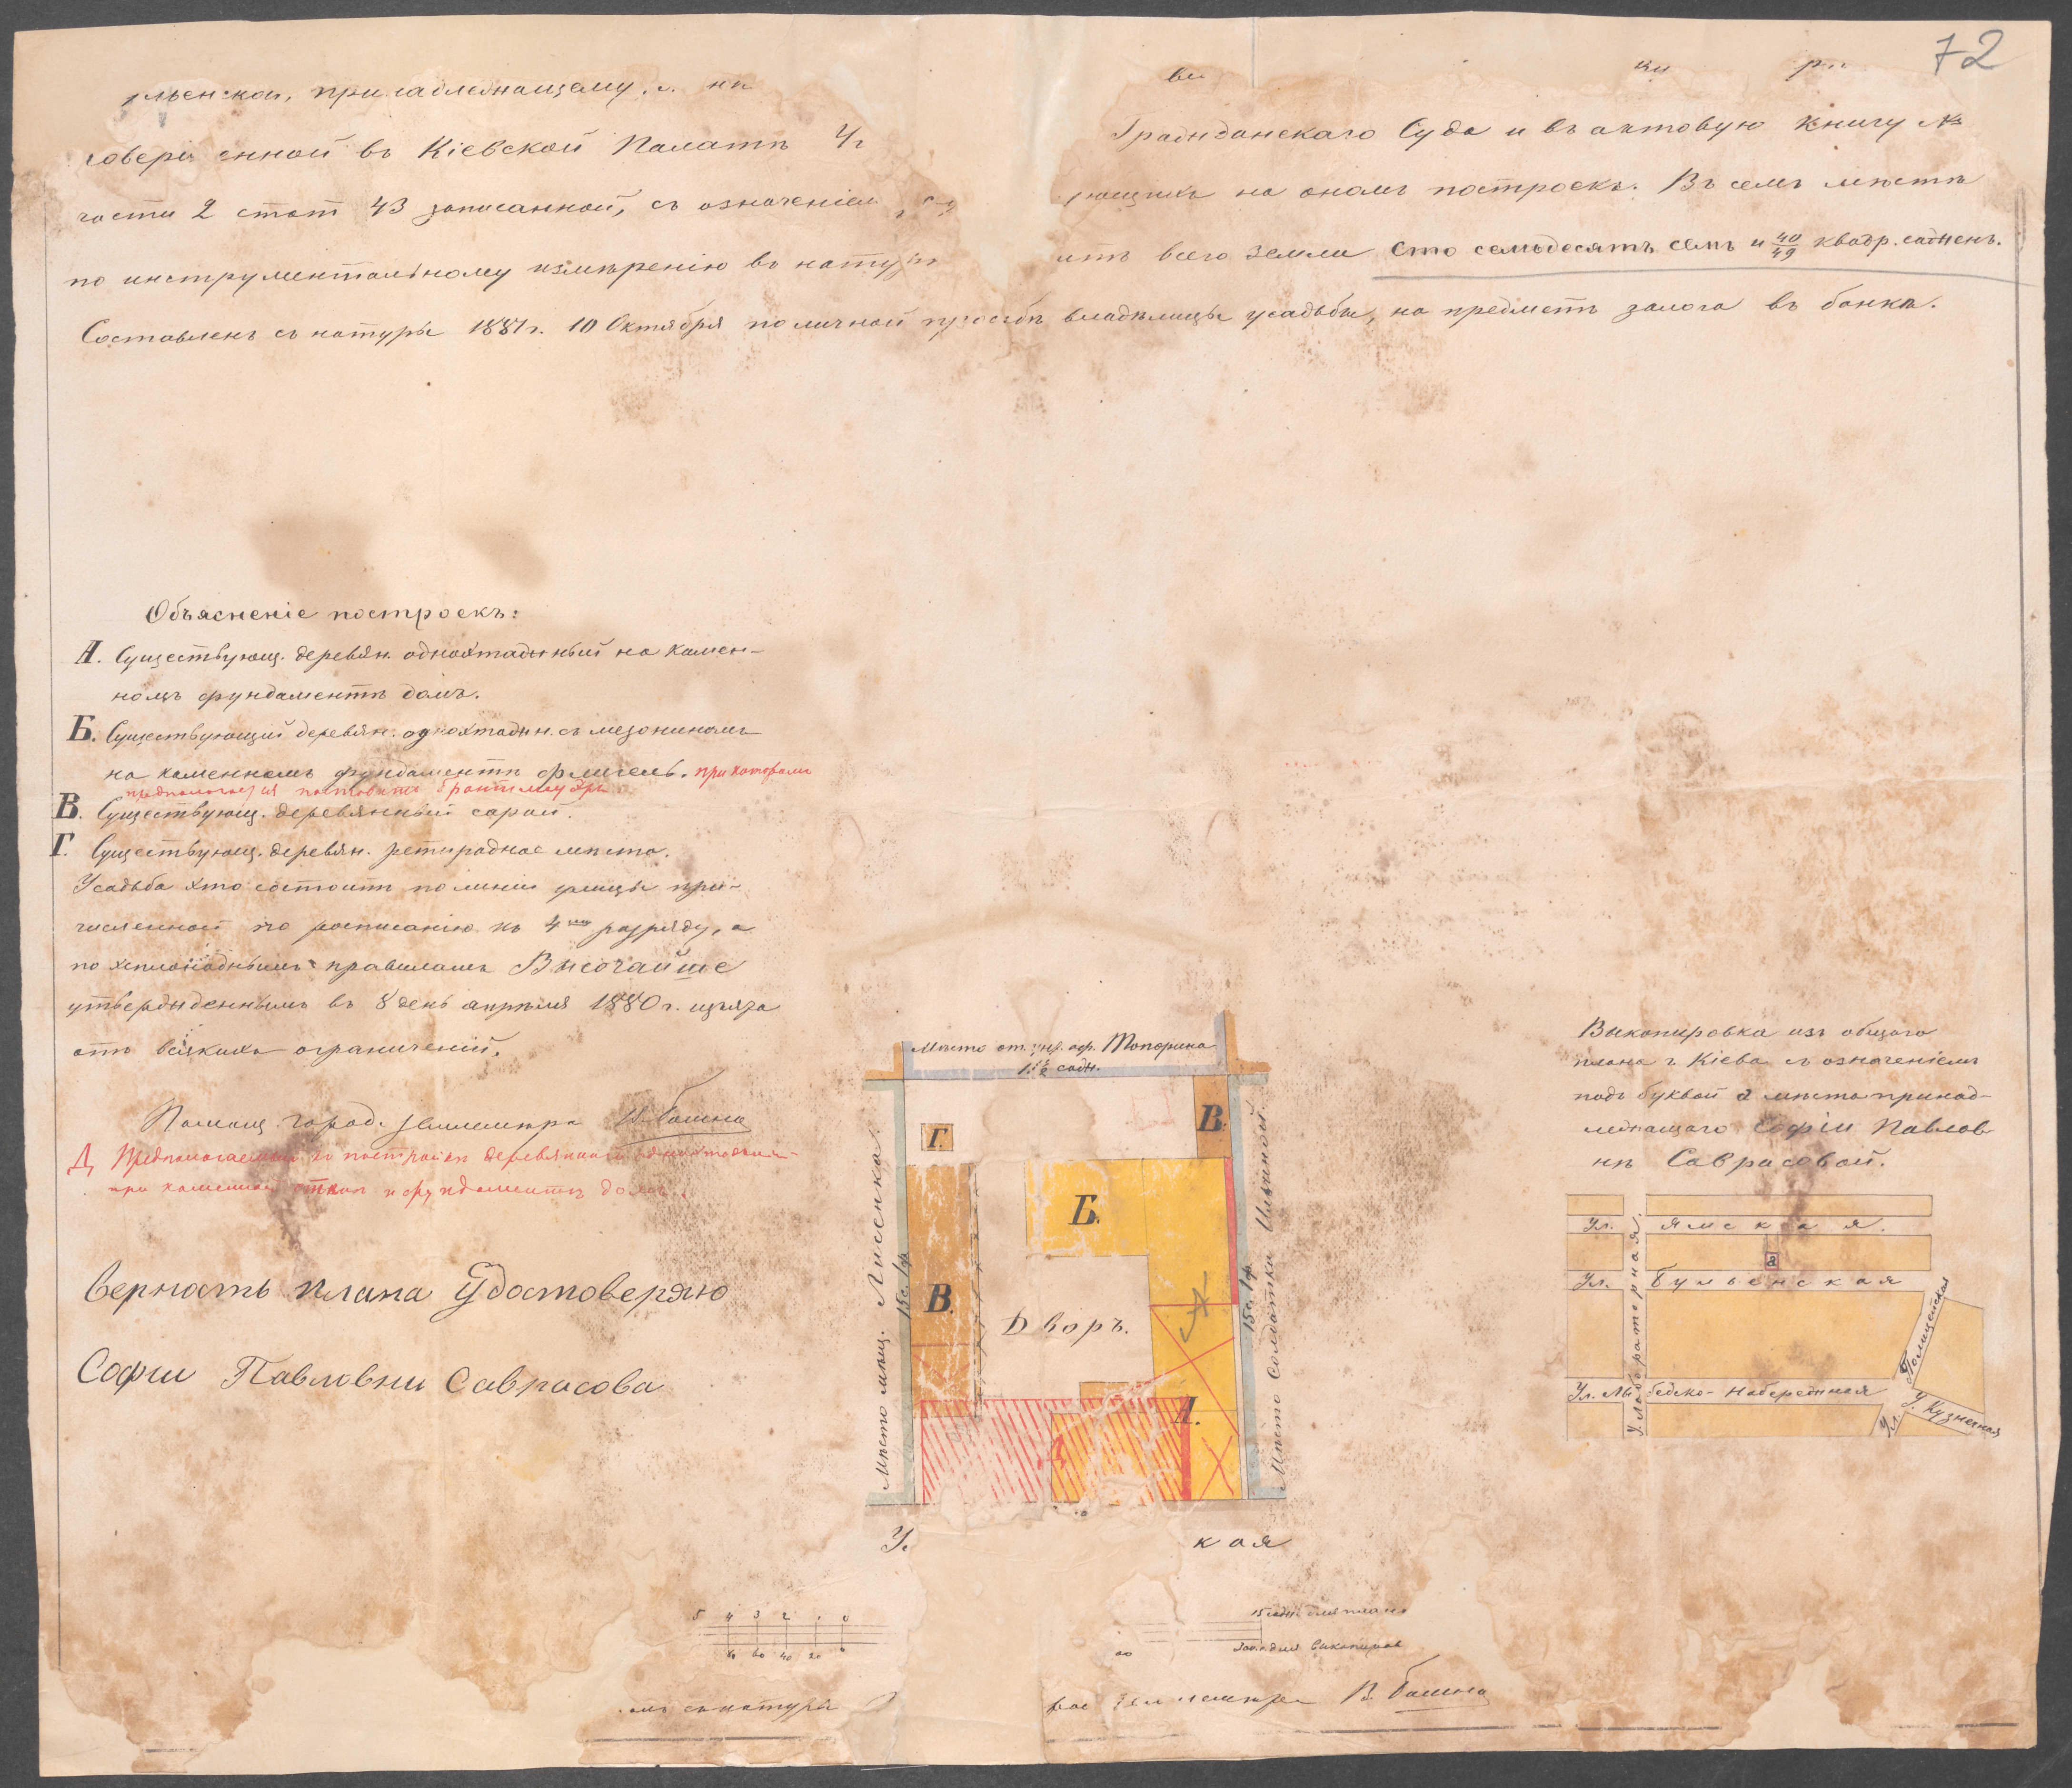 72
совершенной въ Кіевской Палатѣ
Гражданскаго Суда и въ актовую книгу №
части 2 стат 43 записанной, съ означеніемъ
на ономъ построекъ. Въ семъ мѣстѣ
по инструментальному измѣренію въ натурѣ
всего земли сто семьдесятъ семь и 40/49 квадр. сажень.
Составленъ съ натуры 1881 г. 10 Октября по личной просьбѣ владѣлицы усадьбы, на предметъ залога въ банкъ.
Объясненіе построекъ:
А. Существующ. деревян. одноэтажный на камен-
номъ фундаментѣ домъ.
Б. Существующій деревян. одноэтажн. съ мезониномъ
на каменномъ фундаментѣ флигель. при которомъ
предполагается поставить брантмауэръ
В. Существующ. деревянный сарай.
Г. Существующ. деревян. ретирадное мѣсто.
Усадьба эта состоитъ по линіи улицы при-
численной по росписанію къ 4му разряду, а
по правиламъ Высочайше
утвержденнымъ въ 8 день апрѣля 1880 г. изъята
отъ всякихъ ограниченій.
Помощ. город. землемѣра
Д. Предполагаемый къ постройкѣ деревянный одноэтажный
при каменной стѣнѣ и фундаментѣ домъ.
Верность плана Удостоверяю
Софии Павловни Саврасова
Мѣсто от. унт. оф. Топорина
Мѣсто мѣщ. Лисенка
15 с. 1 ф.
Г.
В.
Б.
В.
Дворъ.
А.
Д
15 с. 1 ф.
Мѣсто солдатки Ильиной
У.
кая
Выкопировка изъ общаго
плана г. Кіева съ означеніемъ
подъ буквой а мѣста принад-
лежащаго Софіи Павлов-
нѣ Саврасовой.
Ул. Ямская.
а
Ул. Бульонская
У. Лабораторная
Полицейская
Ул. Лыбедско-Набережная
Ул.
У. Кузнечная
5 4 3 2 1 0
80 60 40 20 0
15 саж. для плана
для выкопиров
съ натуры
землемѣра